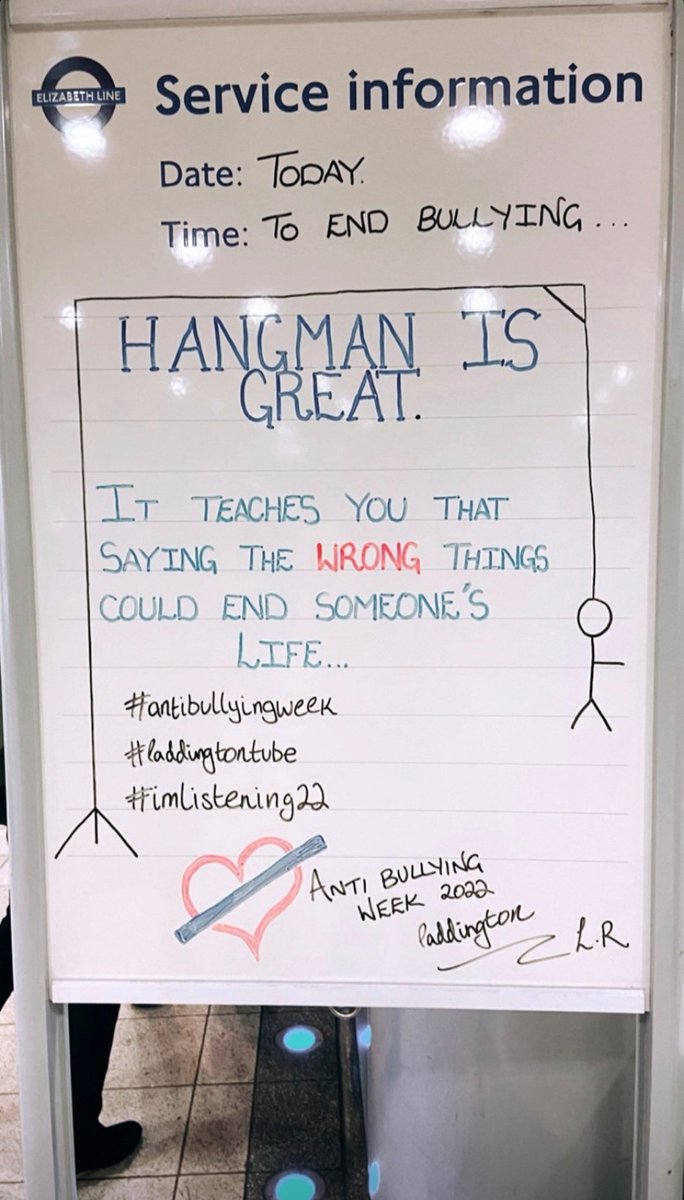 ELIZABETH LINE
Service information
Date: TODAY.
Time: TO END BULLYING...
HANGMAN IS
GREAT.
IT TEACHES YOU THAT
SAYING THE WRONG THINGS
COULD END SOMEONE'S
LIFE...
#antibullyingweek
#paddingtontube
#imlistening22
ANTI BULLYING
WEEK 2022
Paddington
L.R